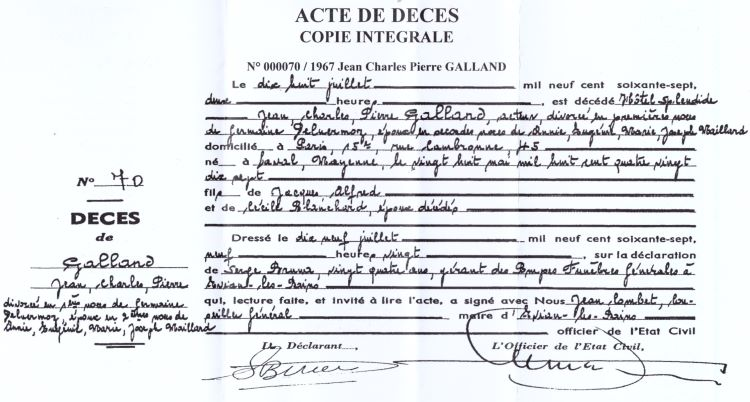 ACTE DE DECES
COPIE INTEGRALE
N° 000070 / 1967 Jean Charles Pierre GALLAND
Le dix huit juillet mil neuf cent soixante-sept,
deux heures, est décédé Hôtel Splendide
Jean, Charles, Pierre Galland, acteur, divorcé en premières noces
de Germaine Delvermoz, époux en secondes noces de Annie, Eugénie, Marie, Joseph Maillard
domicilié à Paris, 15e, rue Cambronne, 45
né à Laval, Mayenne, le vingt huit mai mil huit cent quatre vingt
dix sept
fils de Jacques Alfred
et de Cécile Blanchard, époux décédés
Dressé le dix neuf juillet mil neuf cent soixante-sept,
neuf heures vingt, sur la déclaration
de Serge vingt quatre ans, gérant des Pompes Funèbres Générales à
Evian-les-Bains
qui, lecture faite, et invité à lire l'acte, a signé avec Nous Jean Combet, con-
seiller général maire d'Evian-les-Bains
officier de l'Etat Civil
Le Déclarant, L'Officier de l'Etat Civil,
N° 70
DECES
de
Galland
Jean, Charles, Pierre
divorcé en 1ères noces de Germaine
Delvermoz, époux en 2èmes noces de
Annie, Eugénie, Marie, Joseph Maillard